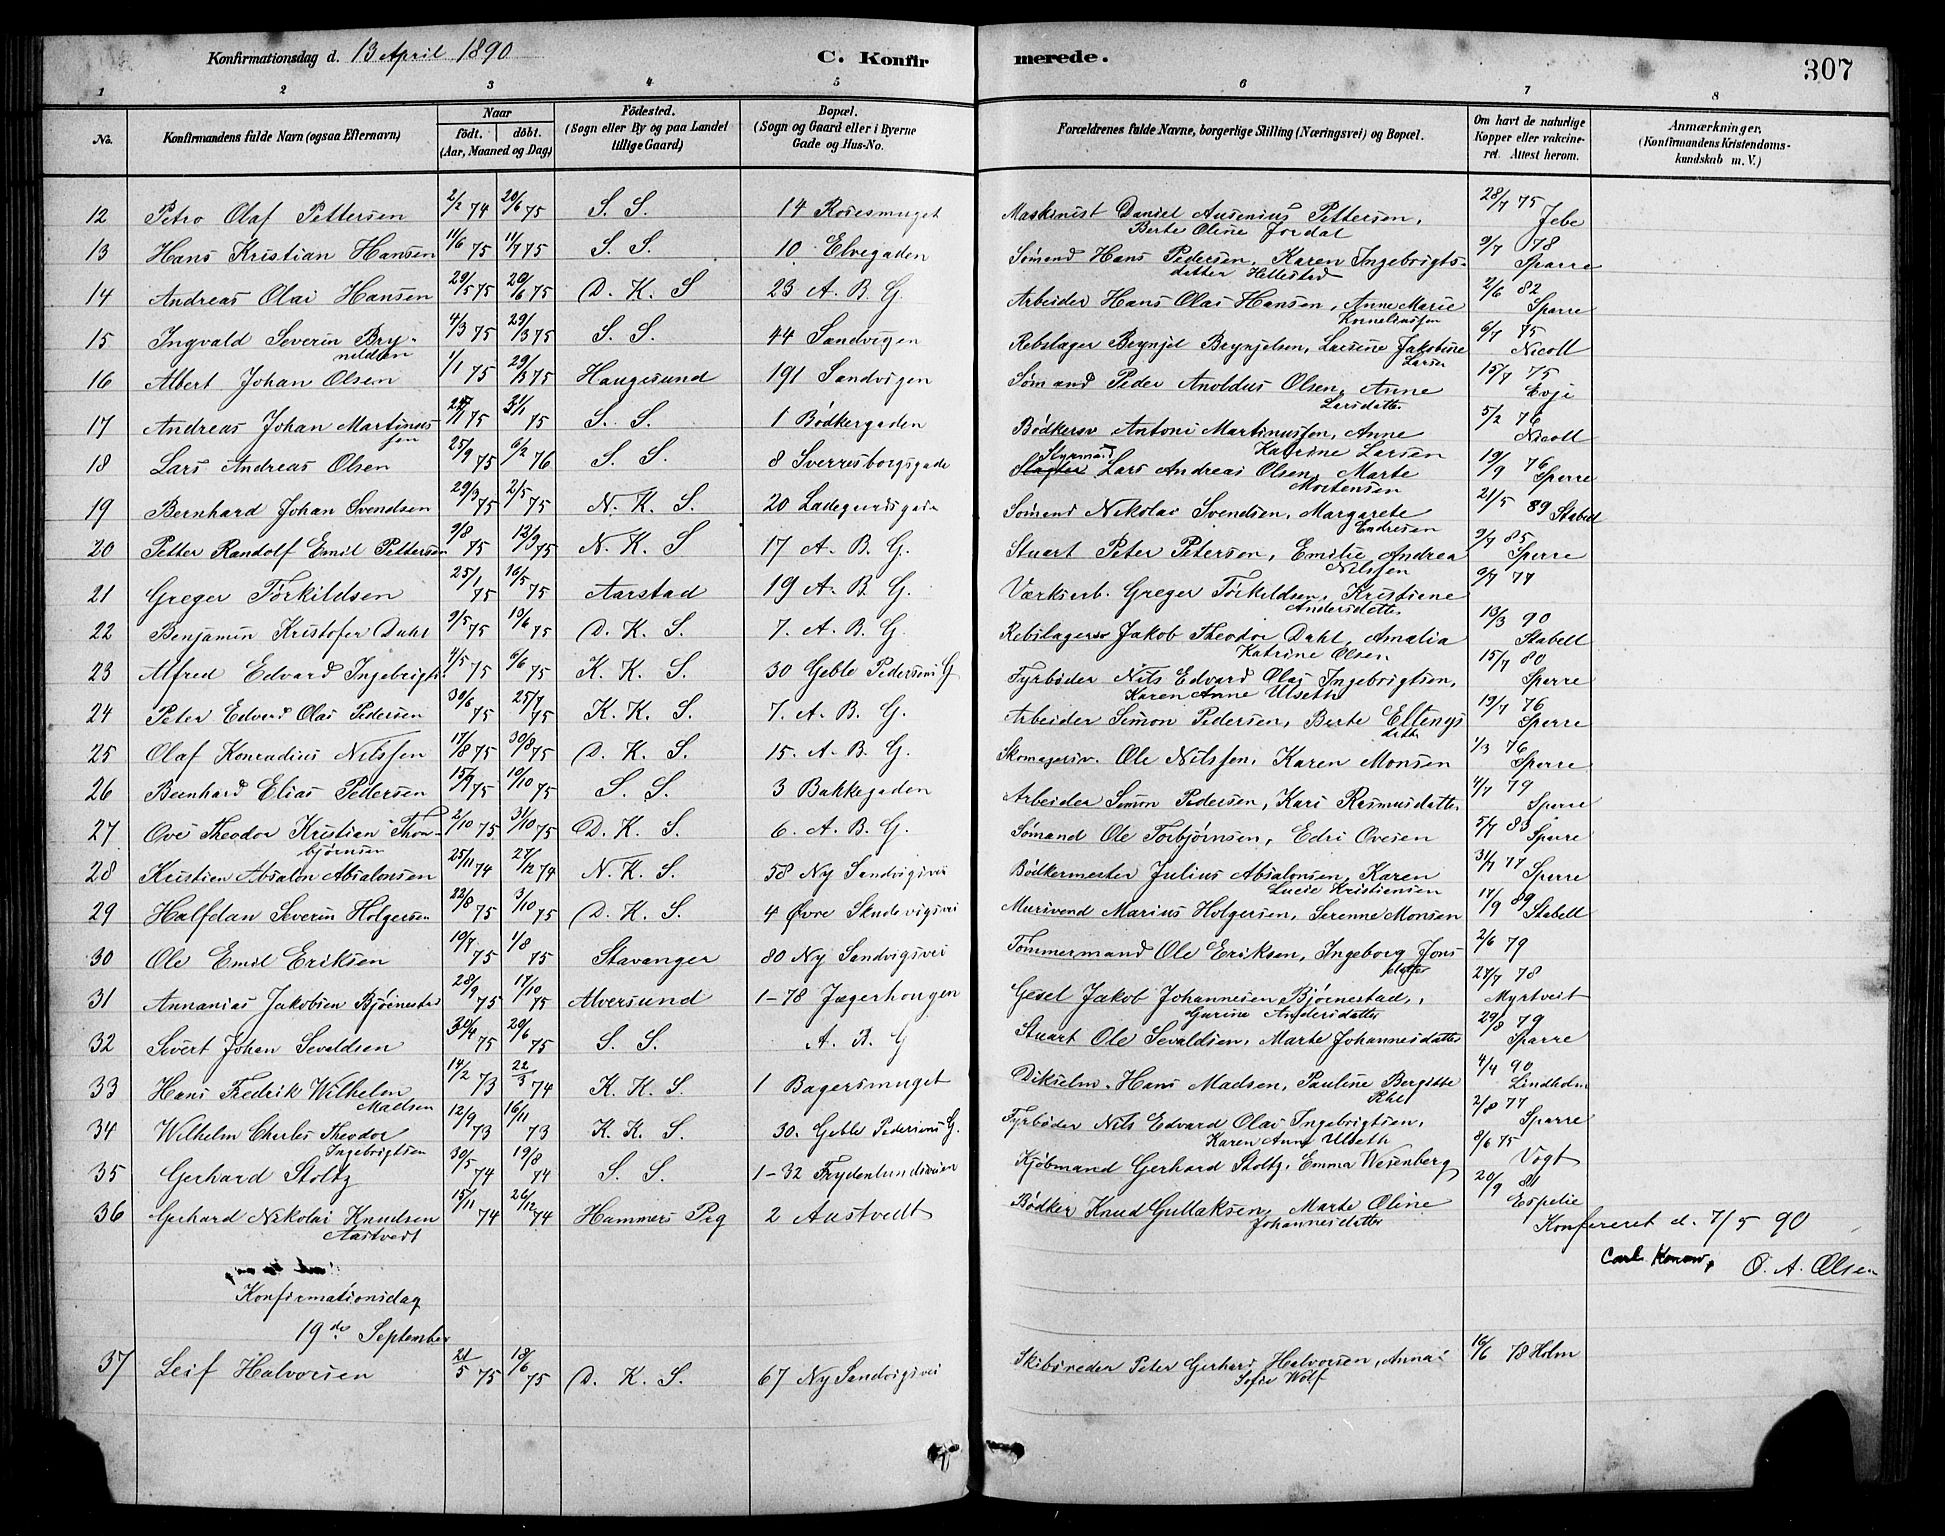 Konfirmationsdag d. 13 April 1890
C. Konfirmerede.
307
1 2 3 4 5 6 7 8
No.
Konfirmandens fulde Navn (ogsaa Efternavn)
Naar födt. döbt. (Aar, Maaned og Dag)
Födested. (Sogn eller By og paa Landet tillige Gaard)
Bopæl. (Sogn og Gaard eller i Byerne Gade og Hus-No.
Forældrenes fulde Navne, borgerlige Stilling (Næringsvei) og Bopæl.
Om havt de naturlige Kopper eller vakcineret. Attest herom.
Anmærkninger. (Konfirmandens Kristendomskundskab m. V.)
12 Petro Olaf Pettersen 2/2 74 20/6 75 S. S. 14 Rosesmuget Maskinist Daniel Ausenius Pettersen, Berte Oline Jordal 28/7 75 Jebe
13 Hans Kristian Hansen 11/6 75 11/7 75 S. S. 10 Elvegaden Sömand Hans Pedersen, Karen Ingebrigtsdatter Hellestad 9/7 78 Sparre
14 Andreas Olai Hansen 29/5 75 20/6 75 D. K. S 23 A. B. G. Arbeider Hans Olai Hansen, Anne Marie Korneliussen 2/6 82 Sparre
15 Ingvald Severin Brynildsen 4/3 75 29/3 75 S. S. 44 Sandvigen Rebslager Brynjel Brynjelsen, Larsine Jakobine Larsen 6/7 75 Nicoll
16 Albert Johan Olsen 1/1 75 29/3 75 Haugesund 191 Sandvigen Sömand Peder Anoldus Olsen, Anne Larsdatter 15/7 75 Evje
17 Andreas Johan Martinussen 75 31/1 75 S. S. 1 Bödkergaden Bödkersv Antoni Martinussen, Anne Katrine Larsen 5/2 76 Nicoll
18 Lars Andreas Olsen 25/9 75 6/2 76 S. S. 8 Sverresborgsgade Styrmand Lars Andreas Olsen, Marte Mortensen 19/9 76 Sperre
19 Bernhard Johan Svendsen 29/3 75 2/5 75 N. K. S 20 Ladegaardsgade Sömand Nikolai Svendsen, Margarete Endresen 21/5 89 Stabell
20 Petter Randolf Emil Pettersen 9/8 75 12/9 75 N. K. S 17 A. B. G. Stuart Peter Peterson, Emilie Andrea Nilssen 9/7 85 Sperre
21 Greger Torkildsen 25/1 75 16/5 75 Aarstad 19 A. B. G. Værkserb. Greger Torkildsen, Kristiene Andersdatter 9/7 77
22 Benjamin Kristofer Dahl 9/5 75 13/6 75 D. K. S. 7. A. B. G. Rebslagersv Jakob Theodor Dahl, Amalia Katrine Olsen 13/3 90 Stabell
23 Alfred Edvard Ingebrigts. 4/5 75 6/6 75 K. K. S. 30 Geble Pedersens G Fyrböder Nils Edvard Olai Ingebrigtsen, Karen Anne Ulseth 15/7 80 Sperre
24 Peter Edvard Olai Pedersen 30/6 75 25/7 75 K. K. S. 7. A. B. G. Arbeider Simon Pedersen, Berte Ellingsdatter 19/7 76 Sperre
25 Olaf Konradius Nilssen 17/8 75 30/8 75 D. K. S. 15. A. B. G. Skomagersv. Ole Nilssen, Karen Monsen 1/3 76 Sperre
26 Bernhard Elias Pedersen 15/9 75 10/10 75 S. S. 3 Bakkegaden Arbeider Simon Pedersen, Kari Rasmusdatter 4/7 79 Sperre
27 Ove Theodor Kristian Thorbjørnsen 2/10 75 31/10 75 D. K. S. 6. A. B. G. Sömand Ole Torbjørnsen, Edri Ovesen 5/7 83 Sparre
28 Kristian Absalon Absalonsen 25/11 74 27/12 74 N. K. S. 58 Ny Sandvigsvei Bödkermester Julius Absalonsen, Karen Lucie Kristiensen 31/7 77 Sperre
29 Halfdan Severin Holgersen 22/8 75 3/10 75 D. K. S. 4 Øvre Skudevigsvei Mursvend Marius Holgersen, Serenne Monsen 17/9 89 Stabell
30 Ole Emil Eriksen 10/7 75 1/8 75 Stavanger 80 Ny Sandvigsvei Tömmermand Ole Eriksen, Ingeborg Jonsdatter 2/6 79
31 Annanias Jakobsen Bjørnestad 28/9 75 17/10 75 Alversund 1-78 Jægerhougen Gesel Jakob Johannesen Bjørnestad, Gurine Andersdatter 27/7 78 Myrtveit
32 Sivert Johan Sevaldsen 30/4 75 20/6 75 S. S. A. B. G Stuart Ole Sevaldsen, Marte Johannesdatter 29/8 79 Sparre
33 Hans Fredrik Wilhelm Madsen 14/2 73 22/3 74 K. K. S. 1 Bagersmuget Dikselm. Hans Madsen, Pauline Bergitte 4/4 90 Lindholm
34 Wilhelm Charles Theodor Ingebrigtsen 12/9 73 16/11 73 K. K. S. 30. Geble Pedersens G. Fyrböder Nils Edvard Olai Ingebrigtsen, Karen Anne Ulseth 2/8 77 Sparre
35 Gerhard Stoltz 30/5 74 19/8 74 S. S. 1-32 Frydenlundsveien Kjöbmand Gerhard Stoltz, Emma Wesenberg 8/6 75 Vogt
36 Gerhard Nikolai Knudsen Aastvedt 15/11 74 26/12 74 Hammers Prg 2 Aastvedt Bödker Knud Gullaksen, Marte Oline Johannesdatter 20/9 81 Espelie
Konfereret d. 7/5 90
Carl Konow, O. A. Olsen
Konfirmationsdag
19de September
37 Leif Halvorsen 21/5 75 18/6 75 D. K. S. 67 Ny Sandvigsvei Skibsreder Peter Gerhard Halvorsen, Anna Sofie Wolf 16/6 78 Holm